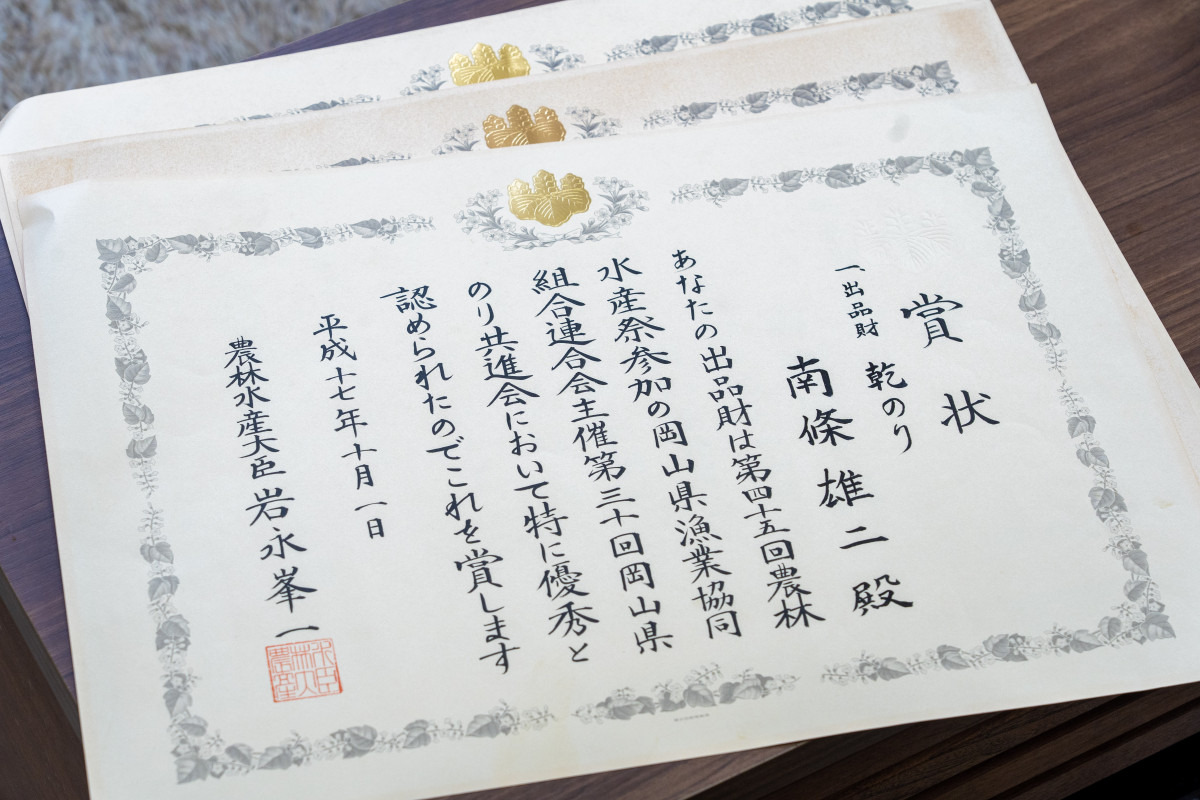 賞状
一、出品財 乾のり
南條雄二殿
あなたの出品財は第四十五回農林
水産祭参加の岡山県漁業協同
組合連合会主催第三十回岡山県
のり共進会において特に優秀と
認められたのでこれを賞します
平成十七年十月一日
農林水産大臣 岩永峯一